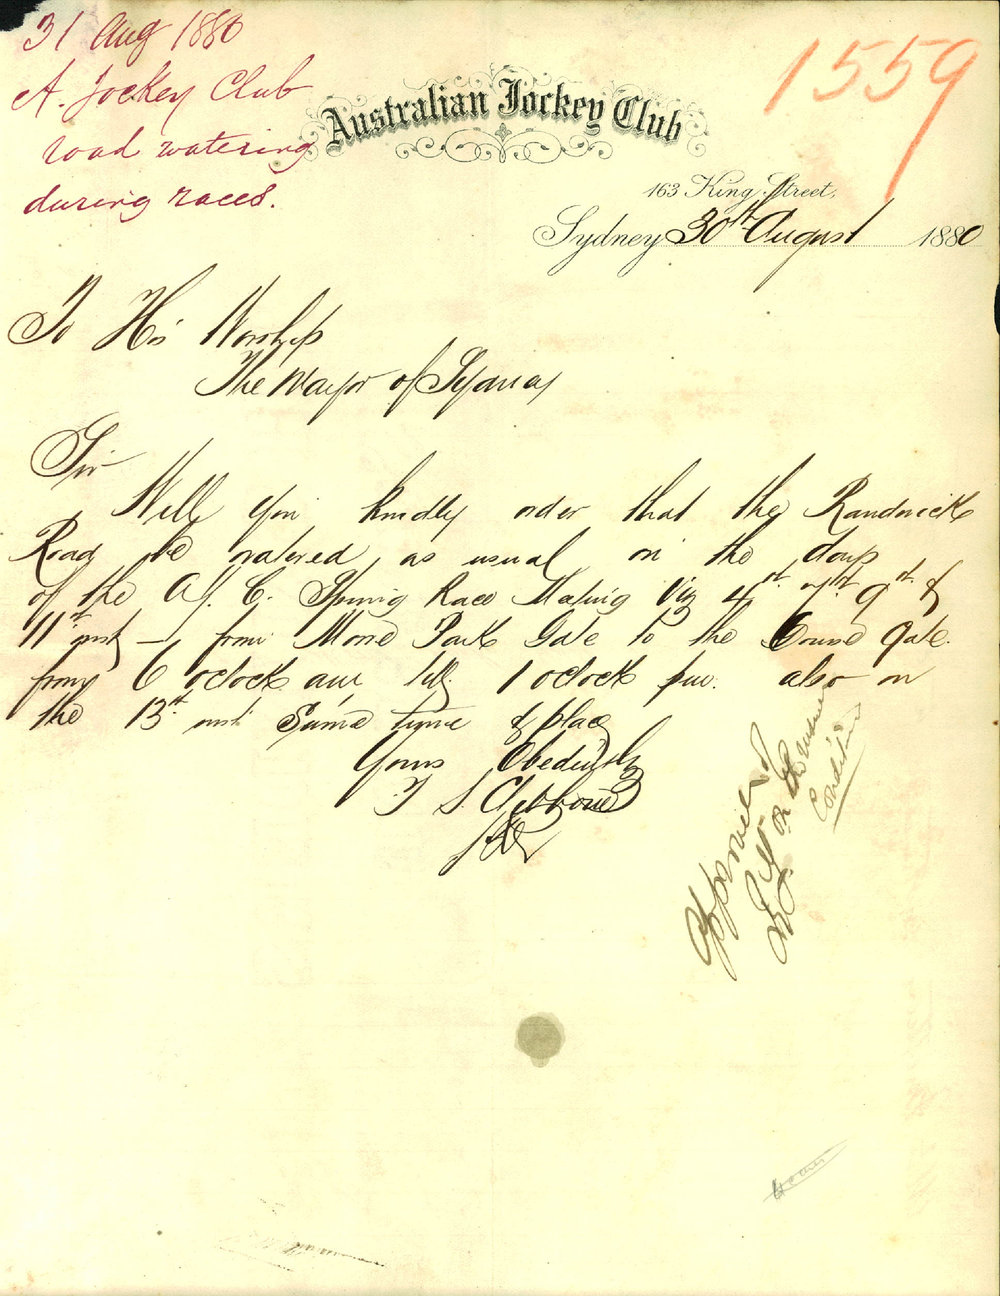 31 Aug 1880
A. Jockey Club
road watering
during races.
1559
Australian Jockey Club
163 King Street,
Sydney 30th August 1880
To His Worship
The Mayor of Sydney
Sir
Will you kindly order that the Randwick
Road be watered as usual on the days
of the A.J.C. Spring Race Meeting Viz 4th 7th 9th &
11th inst – from Moore Park Gate to the Course gate
from 6 oclock am till 1 oclock pm. also on
the 13th inst same time & place
Yours Obediently
T S Clibborne
Approved
on the usual
Conditions